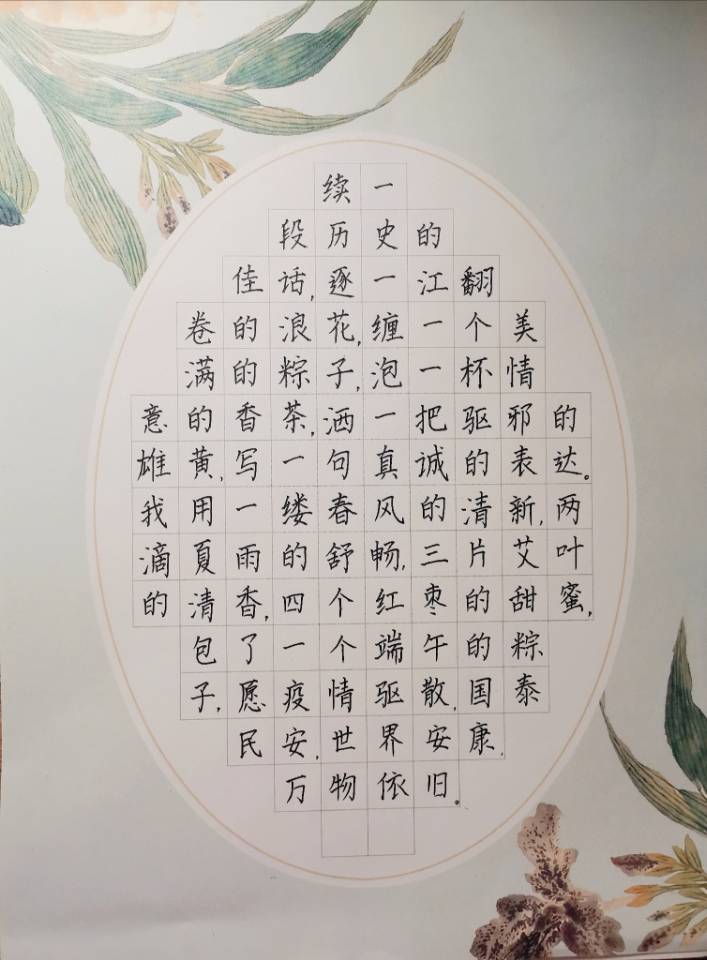 续一
段历史的
佳话,逐一江翻
卷的浪花,缠一个美
满的粽子,泡一杯情
意的香茶,洒一把驱邪的
雄黄,写一句真诚的表达。
我用一缕春风的清新,两
滴夏雨的舒畅,三片艾叶
的清香,四个红枣的甜蜜,
包了一个端午的粽
子,愿疫情驱散,国泰
民安,世界安康,
万物依旧。